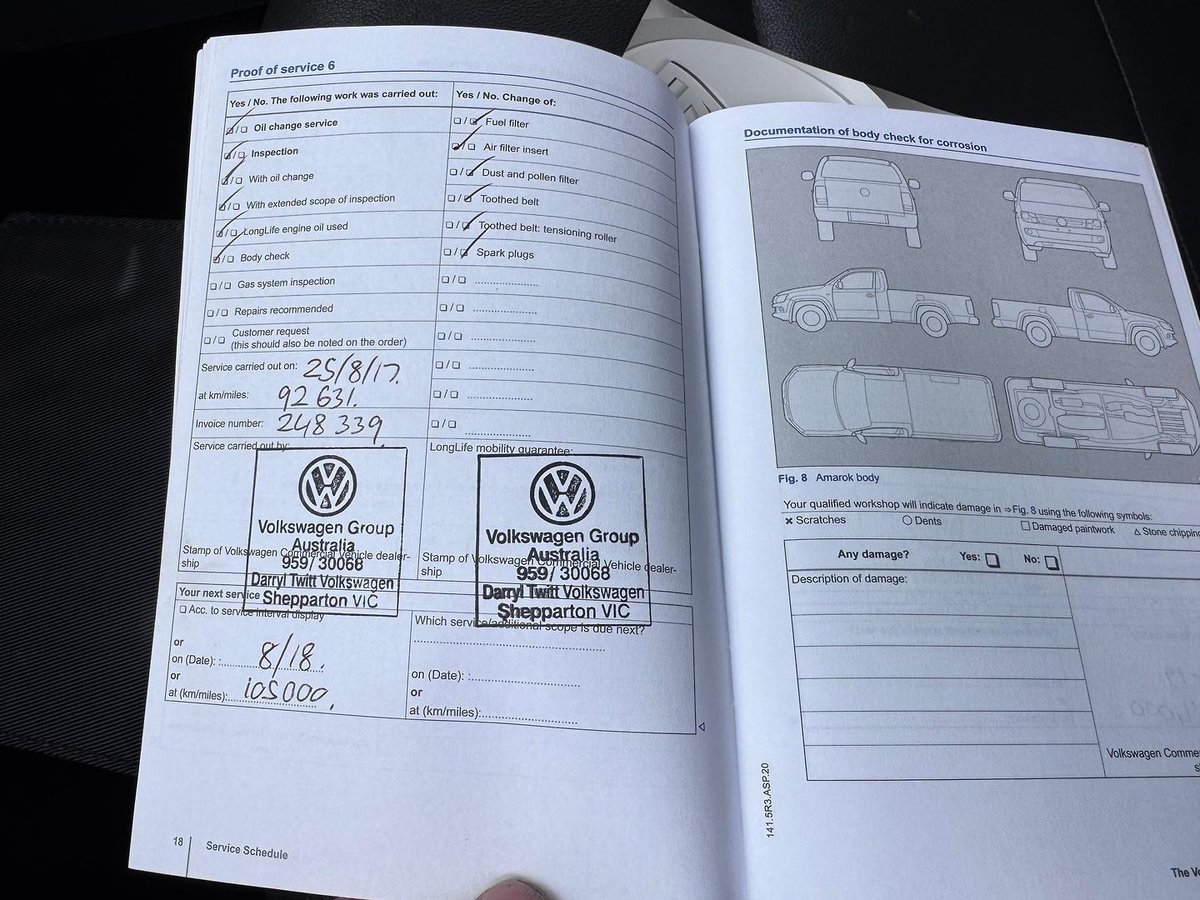 Proof of service 6
Yes / No. The following work was carried out:
Yes / No. Change of:
☑/☐ Oil change service
☐/☑ Fuel filter
☑/☐ Inspection
☑/☐ Air filter insert
☑/☐ With oil change
☐/☑ Dust and pollen filter
☑/☐ With extended scope of inspection
☐/☑ Toothed belt
☑/☐ LongLife engine oil used
☐/☑ Toothed belt: tensioning roller
☑/☐ Body check
☐/☑ Spark plugs
☐/☐ Gas system inspection
☐/☐ ....................
☐/☐ Repairs recommended
☐/☐ ....................
☐/☐ Customer request
(this should also be noted on the order)
☐/☐ ....................
Service carried out on: 25/8/17.
☐/☐ ....................
at km/miles: 92 631.
☐/☐ ....................
Invoice number: 248 339
☐/☐ ....................
Service carried out by:
LongLife mobility guarantee:
VW
Volkswagen Group
Australia
959/ 30068
Darryl Twitt Volkswagen
Shepparton VIC
VW
Volkswagen Group
Australia
959/ 30068
Darryl Twitt Volkswagen
Shepparton VIC
Stamp of Volkswagen Commercial Vehicle dealer-
ship
Stamp of Volkswagen Commercial Vehicle dealer-
ship
Your next service
☐ Acc. to service interval display
or
on (Date): 8/18.
or
at (km/miles): 105000.
Which service/additional scope is due next?
on (Date):
or
at (km/miles):
18 Service Schedule
Documentation of body check for corrosion
Fig. 8 Amarok body
Your qualified workshop will indicate damage in ⇒Fig. 8 using the following symbols:
✕ Scratches ○ Dents ☐ Damaged paintwork △ Stone chippin
Any damage? Yes: ☐ No: ☐
Description of damage:
Volkswagen Comme
141.5R3.ASP.20
The V